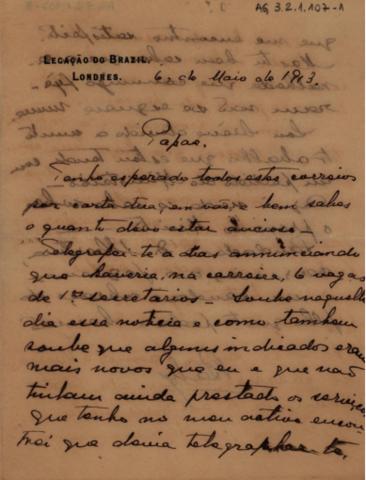 AG 3.2.1.107-1
LEGAÇÃO DO BRAZIL.
LONDRES.
6. de Maio de 1913.
Papae.
Tenho esperado todos estes correios
por carta tua, em vão e bem sabes
o quanto devo estar ancioso –
Telegrafei-te a dias annunciando
que haveria, na carreira, 6 vagas
de 1os secretarios – Soube naquelle
dia essa noticia e como tambem
soube que alguns indicados eram
mais novos que eu e que não
tinham ainda prestado os serviços
que tenho no meu activo
que devia telegraphar-te,